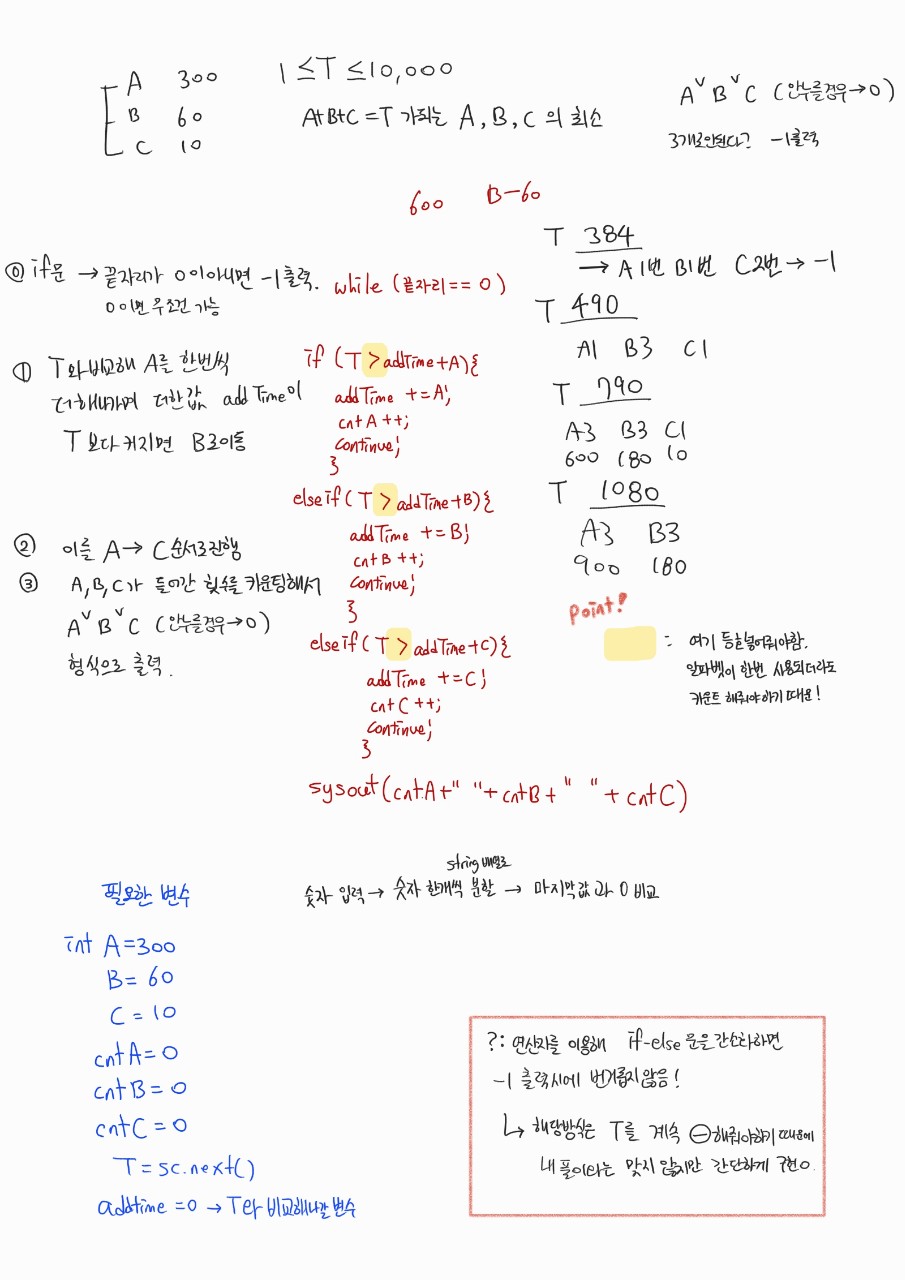 A 300
B 60
C 10
1 ≤ T ≤ 10,000
A+B+C = T 가되는 A, B, C 의 최소
A˅B˅C (안누를경우→0)
3개로안된다? -1출력
600 B-60
⓪ if문 → 끝자리가 0이아니면 -1출력.
0이면 무조건 가능
① T와비교해 A를 한번씩
더해나가며 더한값 addTime이
T보다 커지면 B로이동
② 이를 A→ C순서로진행
③ A,B,C가 들어간 횟수를 카운팅해서
A˅B˅C (안누를경우→0)
형식으로 출력.
while (끝자리== 0)
if (T > addTime+A){
addTime += A;
cntA ++;
continue;
}
else if( T > addTime+B){
addTime += B;
cntB ++;
continue;
}
else if( T > addTime+C){
addTime += C;
cntC ++;
continue;
}
sysout(cntA+" "+cntB+" "+cntC)
T 384
→ A1번 B1번 C2번→ -1
T 490
A1 B3 C1
T 790
A3 B3 C1
600 180 10
T 1080
A3 B3
900 180
point!
: 여기 등호넣어줘야함.
알파벳이 한번 사용되더라도
카운트 해줘야하기 때문!
string배열로
숫자 입력→ 숫자 한개씩 분할 → 마지막값과 0 비교
필요한 변수
int A=300
B= 60
C = 10
cntA= 0
cntB= 0
cntC= 0
T= sc.next()
addtime =0 → T와 비교해나갈변수
?: 연산자를 이용해 if-else 문을간소화하면
-1 출력시에 번거롭지않음!
↳ 해당방식은 T를 계속 ⊖해줘야하기 때문에
내 풀이와는 맞지 않지만 간단하게 구현o.